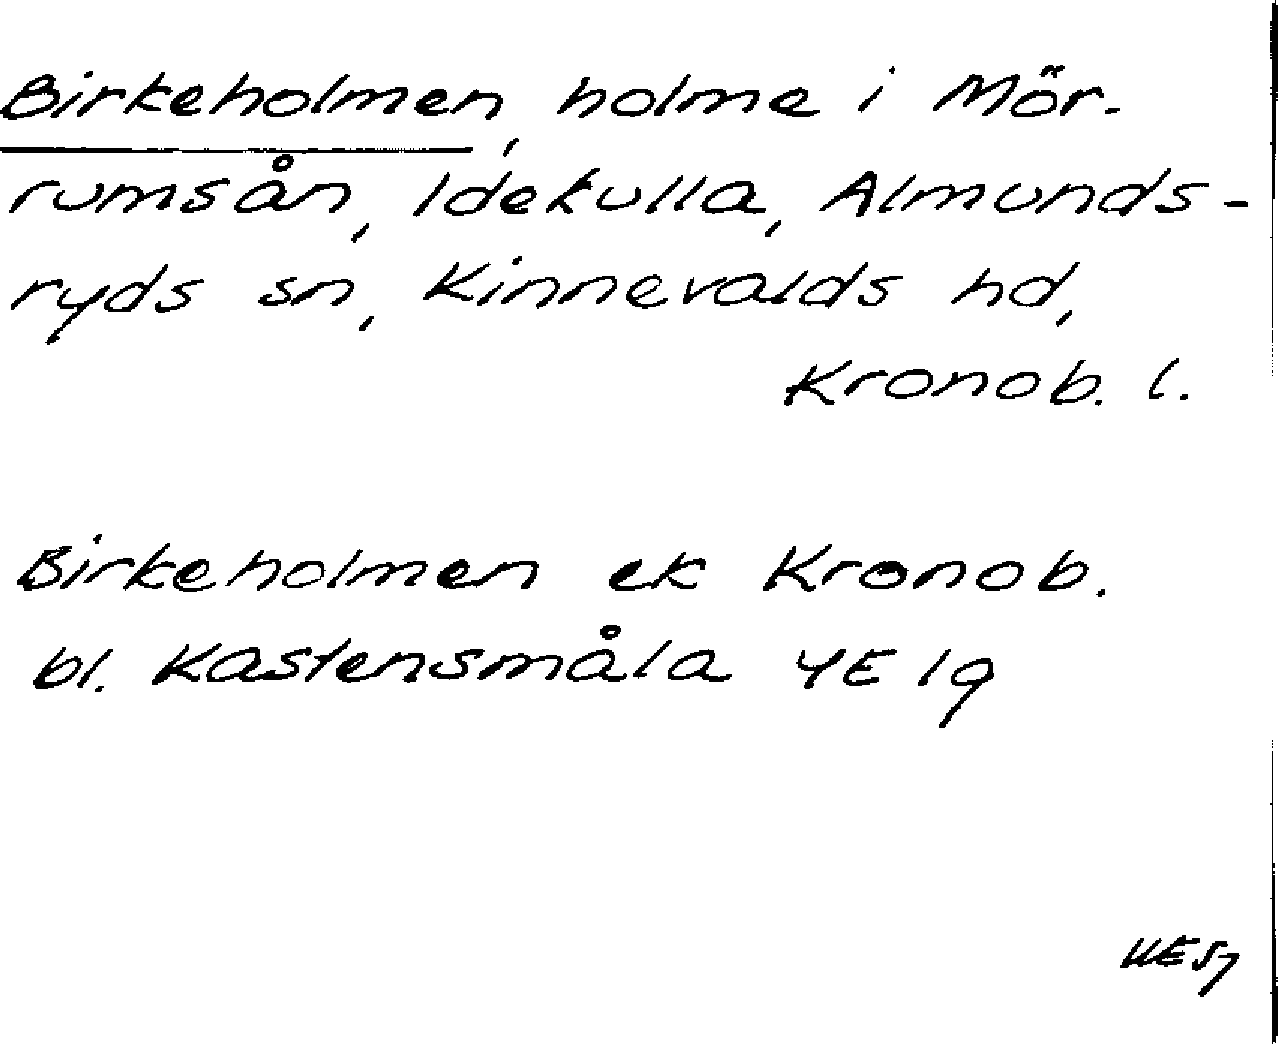 Birkeholmen, holme i Mör-
rumsån, Idekulla, Almunds-
ryds sn, Kinnevalds hd,
Kronob. l.
Birkeholmen ek Kronob.
bl. Kastensmåla 4E 1g